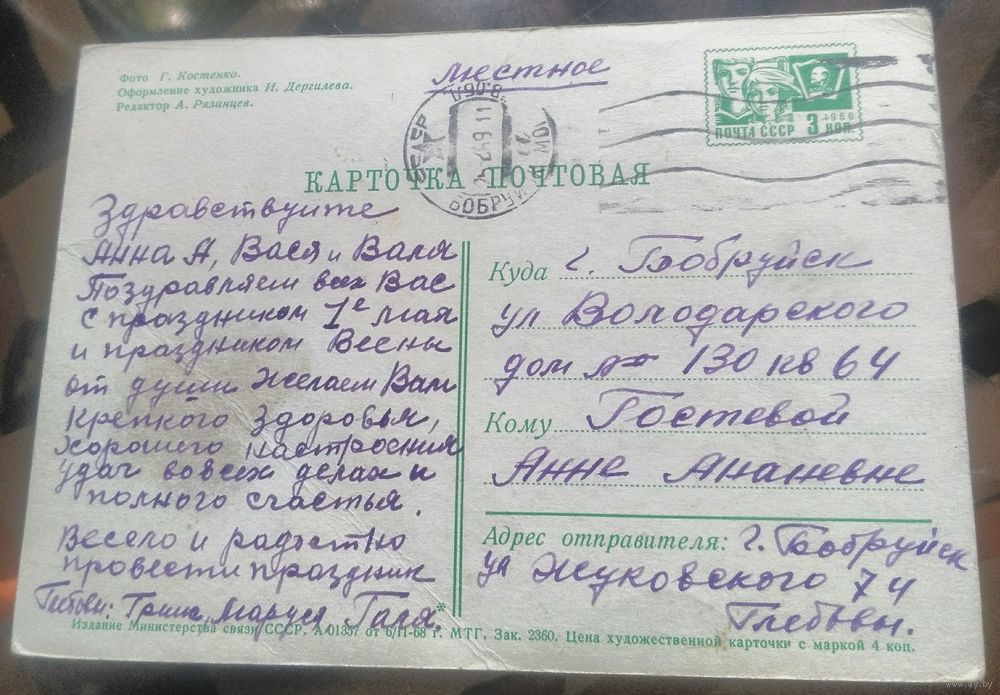 Фото Г. Костенко.
Оформление художника И. Дергилева.
Редактор А. Рязанцев.
местное
ПОЧТА СССР 3 КОП.
1966
КАРТОЧКА ПОЧТОВАЯ
Здравствуите
Анна А, Вася и Валя
Поздравляем всех Вас
с праздником 1е мая
и праздником Весны
от души желаем Вам
крепкого здоровья,
хорошего настроения
удач во всех делах и
полного счастья.
Весело и радостно
провести праздник
Глебовы: Гриша, Маруся, Галя.
Куда г. Бобруйск
ул Володарского
дом № 130 кв 64
Кому Гостевой
Анне Ананевне
Адрес отправителя: г. Бобруйск
ул Жуковского 74
Глебовы.
Издание Министерства связи СССР. А 01357 от 6/II-68 г. МТГ. Зак. 2360. Цена художественной карточки с маркой 4 коп.
www.ay.by